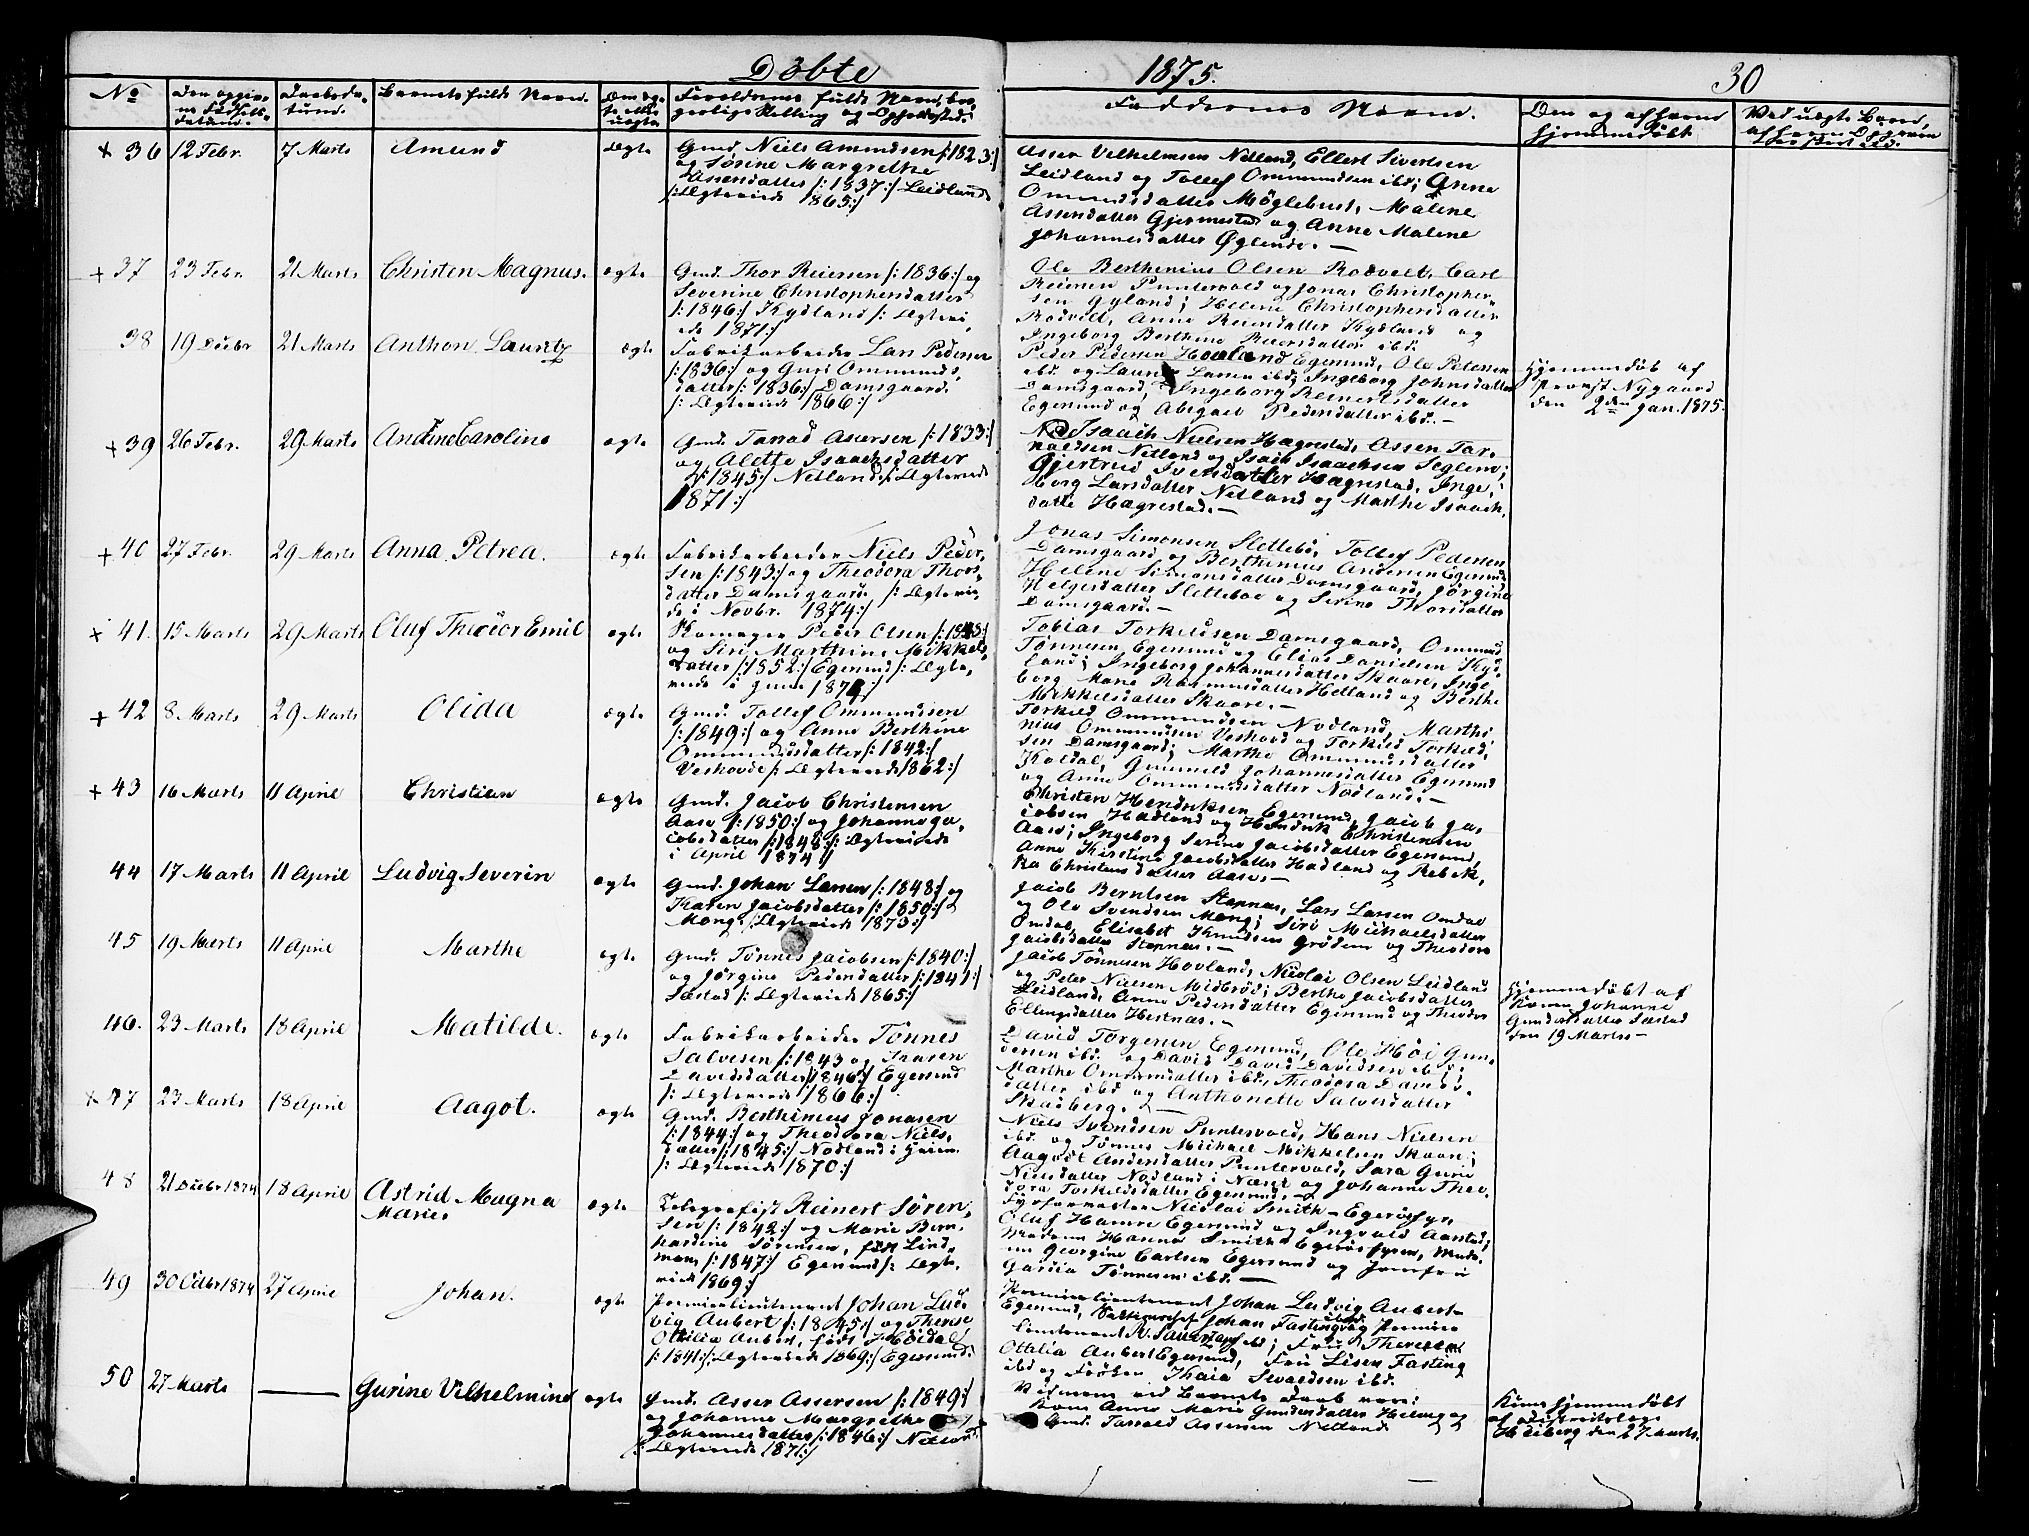 Døbte 1875. 30
No
Barnets fulde Navn.
Faddernes Navn.
+ 36 12 Febr. 7 Marts Amund Ægte
Gmd. Niels Ammundsen /:1823:/
og Sørine Margrethe
Assersdatter /:1837:/ Leidland
/:Ægteviede 1865:/
Asser Vilhelmsen Netland, Ellert Sivertsen
Leidland og Tollef Ommundsen ibd; Anne
Ommundsdatter Møglebust, Malene
Assersdatter Gjermestad og Anne Malene
Johannesdatter Øglende. —
+ 37 23 Febr. 21 Marts Christen Magnus. ægte
Gmd. Thor Reiersen /:1836:/ og
Severine Christophersdatter
/:1846:/ Kydland /: Ægtevi-
ede 1871:/
Ole Berthinius Olsen Rodvelt, Carl
Reiersen Puntervold og Jonas Christopher-
sen Gyland; Helene Christophersdatter
Rodvelt, Anne Reiersdatter Kydland og
Ingeborg Berthine Reiersdatter ibd.
38 19 Decbr 21 Marts Anthon Lauritz ægte
Fabrikarbeider Lars Pedersen
/:1836:/ og Guri Ommunds-
datter /:1836:/ Damsgaard.
/: Ægteviede 1866:/
Peder Pedersen Hovland Egersund, Ole Petersen
ibd. og Laurits Larsen ibd; Ingeborg Johnsdatter
Damsgaard, Ingeborg Reinertsdatter
Egersund og Abigael Pedersdatter ibd. —
Hjemmedøb af
Provst Nygaard
den 2den Jan. 1875.
+ 39 26 Febr. 29 Marts Andine Caroline ægte
Gmd. Tarrald Assersen /:1833:/
og Alette Isaachsdatter
/:1845:/ Netland /: Ægteviede
1871:/
Isaach Nielsen Hægrestad, Asser Tar-
raldsen Netland og Isach Isaachsen Seglem;
Gjertrud Iversdatter Hægrestad, Inge-
borg Larsdatter Netland og Marthe Isaach-
datte Hægrestad. —
+ 40 27 Febr. 29 Marts Anna Petrea. ægte
Fabrikarbeider Niels Peder-
sen /:1843:/ og Theodora Thors-
datter Damsgaard /: Ægtevie-
de i Novbr. 1874:/
Jonas Simonsen Slettebø, Tollef Pedersen
Damsgaard og Berthinius Andersen Egersund
Helene Simonsdatter Damsgaard, Jørgine
Helgesdatter Slettebøe og Serine Thorsdatter
Damsgaard. —
+ 41. 15 Marts 29 Marts Oluf Theodor Emil ægte
Skomager Peder Olsen
og Siri Marthine Mikkels-
datter /:1852:/ Egersund /: Ægte-
viede i
Tobias Torkeldsen Damsgaard, Ommund
Tønnesen Egersund og Elias Danielsen Kyd-
land; Ingeborg Johannesdatter Skaare, Inge-
borg Marie Rasmusdatter Helland og Berthe
Mikkelsdatter Skaare. —
+ 42 8 Marts 29 Marts Olida ægte
Gmd. Tollef Ommundsen
/:1849:/ og Anne Berthine
Ommundsdatter /:1842:/
Veshovde /: Ægteviede 1862:/
Torkild Ommundsen Nodland, Marthi-
nius Ommundsen Veshovd og Torkild Torkild-
sen Damsgaard; Marthe Ommundsdatter
Koldal, Gunneld Johannesdatter Egersund
og Anne Ommundsdatter Nodland. —
+ 43 16 Marts 11 April Christian ægte
Gmd. Jacob Christensen
Aase /:1850:/ og Johanne Ja-
cobsdatter /:1848:/ /: Ægteviede
i April 1874:/
Christen Hendriksen Egersund, Jacob Ja-
cobsen Hadland og Hendrik Christensen
Aase; Ingeborg Serine Jacobsdatter Egersund,
Anne Kirstine Jacobsdatter Hadland og Rebek-
ka Christensdatter Aase. —
44 17 Marts 11 April Ludvig Severin ægte
Gmd. Johan Larsen /:1848:/ og
Karen Jacobsdatter /:1850:/
Mong. /: Ægteviede 1873:/
Jacob Berntsen Stapnæs, Lars Larsen Omdal
og Ole Svendsen Mong; Siri Michaelsdatter
Omdal, Elisabet Knudsen Grødem og Theodora
Jacobsdatter Stapnæs. —
45 19 Marts 11 April Marthe ægte
Gmd. Tønnes Jacobsen /:1840:/
og Jørgine Pedersdatter /:1841:/
Sæstad /: Ægteviede 1865:/
Jacob Tønnesen Hovland, Nicolai Olsen Leidland
og Peter Nielsen Midbrød; Berthe Jacobsdatter
Leidland, Anne Pedersdatter Egersund og Theodor
Ellingsdatter Hestnæs. —
Hjemmedøbt af
Kone Johanne
Gundersdatter Sæstad
den 19 Marts —
46. 23 Marts 18 April Matilde. ægte
Fabrikarbeider Tønnes
Salvesen /:1843 og Karen
Davidsdatter /:1846:/ Egersund
/: Ægteviede 1866:/
David Torgersen Egersund, Ole Høi Gun-
dersen ibd. og David Davidsen ibd.;
Marthe Ommundsdatter ibd., Theodora Davids-
datter ibd og Anthonette Salvesdatter
Skadberg. —
+ 47 23 Marts 18 April Aagot. ægte
Gmd. Berthinius Jonassen
/:1844:/ og Theodora Niels-
datter /:1845:/ Nodland i
/: Ægteviede 1870:/
Niels Svendsen Puntervold, Hans Nielsen
ibd. og Tønnes Michael Mikkelsen Skaar;
Aagodt Andersdatter Puntervold, Sara Gurie
Nielsdatter Nodland i Næset og Johanne Theo-
dora Torkeldsdatter Egersund. —
48 21 Decbr 1874 18 April Astrid Magna
Marie. ægte
Telegrafist Reinert Sören-
sen /:1842:/ og Marie Bern-
hardine Sørensen, født Lind-
man, /:1847:/ Egersund /: Ægte-
viede 1869:/
Fyrformester Nicolai Smith – Egerøsfyr,
Oluf Hamre Egersund og Ingvald Aarstad,
Madame Hanna Smith Egerøsfyren, Mada-
me Georgine Carlsen Egersund og Jomfru
Garsia Tønnesen ibd. —
49 30 Octbr 1874 27 April Johan. ægte
Premierlieutenant Johan Lud-
vig Aubert /:1845:/ og Therese
Ottilia Aubert, født Høidal
/:1841:/ /: Ægteviede 1869:/ Egersund.
Premierlieutenant Johan Ludvig Aubert –
Egersund, Johan Fasting ibd. og Premier-
lieutenant
Ottilia Aubert Egersund, Fru Lisen Fasting
ibd og Frøken Thaia Sivaldsen ibd.
50 27 Marts — Gurine Vilhelmine ægte
Gmd. Asser Assersen /:1849:/
og Johanne Margrethe
Johannesdatter /:1846:/ Netland.
/: Ægteviede 1871:/
Vidnerne ved Barnets Daab vare:
Kone Anne Marie Gundersdatter Helvig og
Gmd. Tarrald Assersen Netland.
Kun hjemmedøbt
af
Heiberg den 27 Marts.